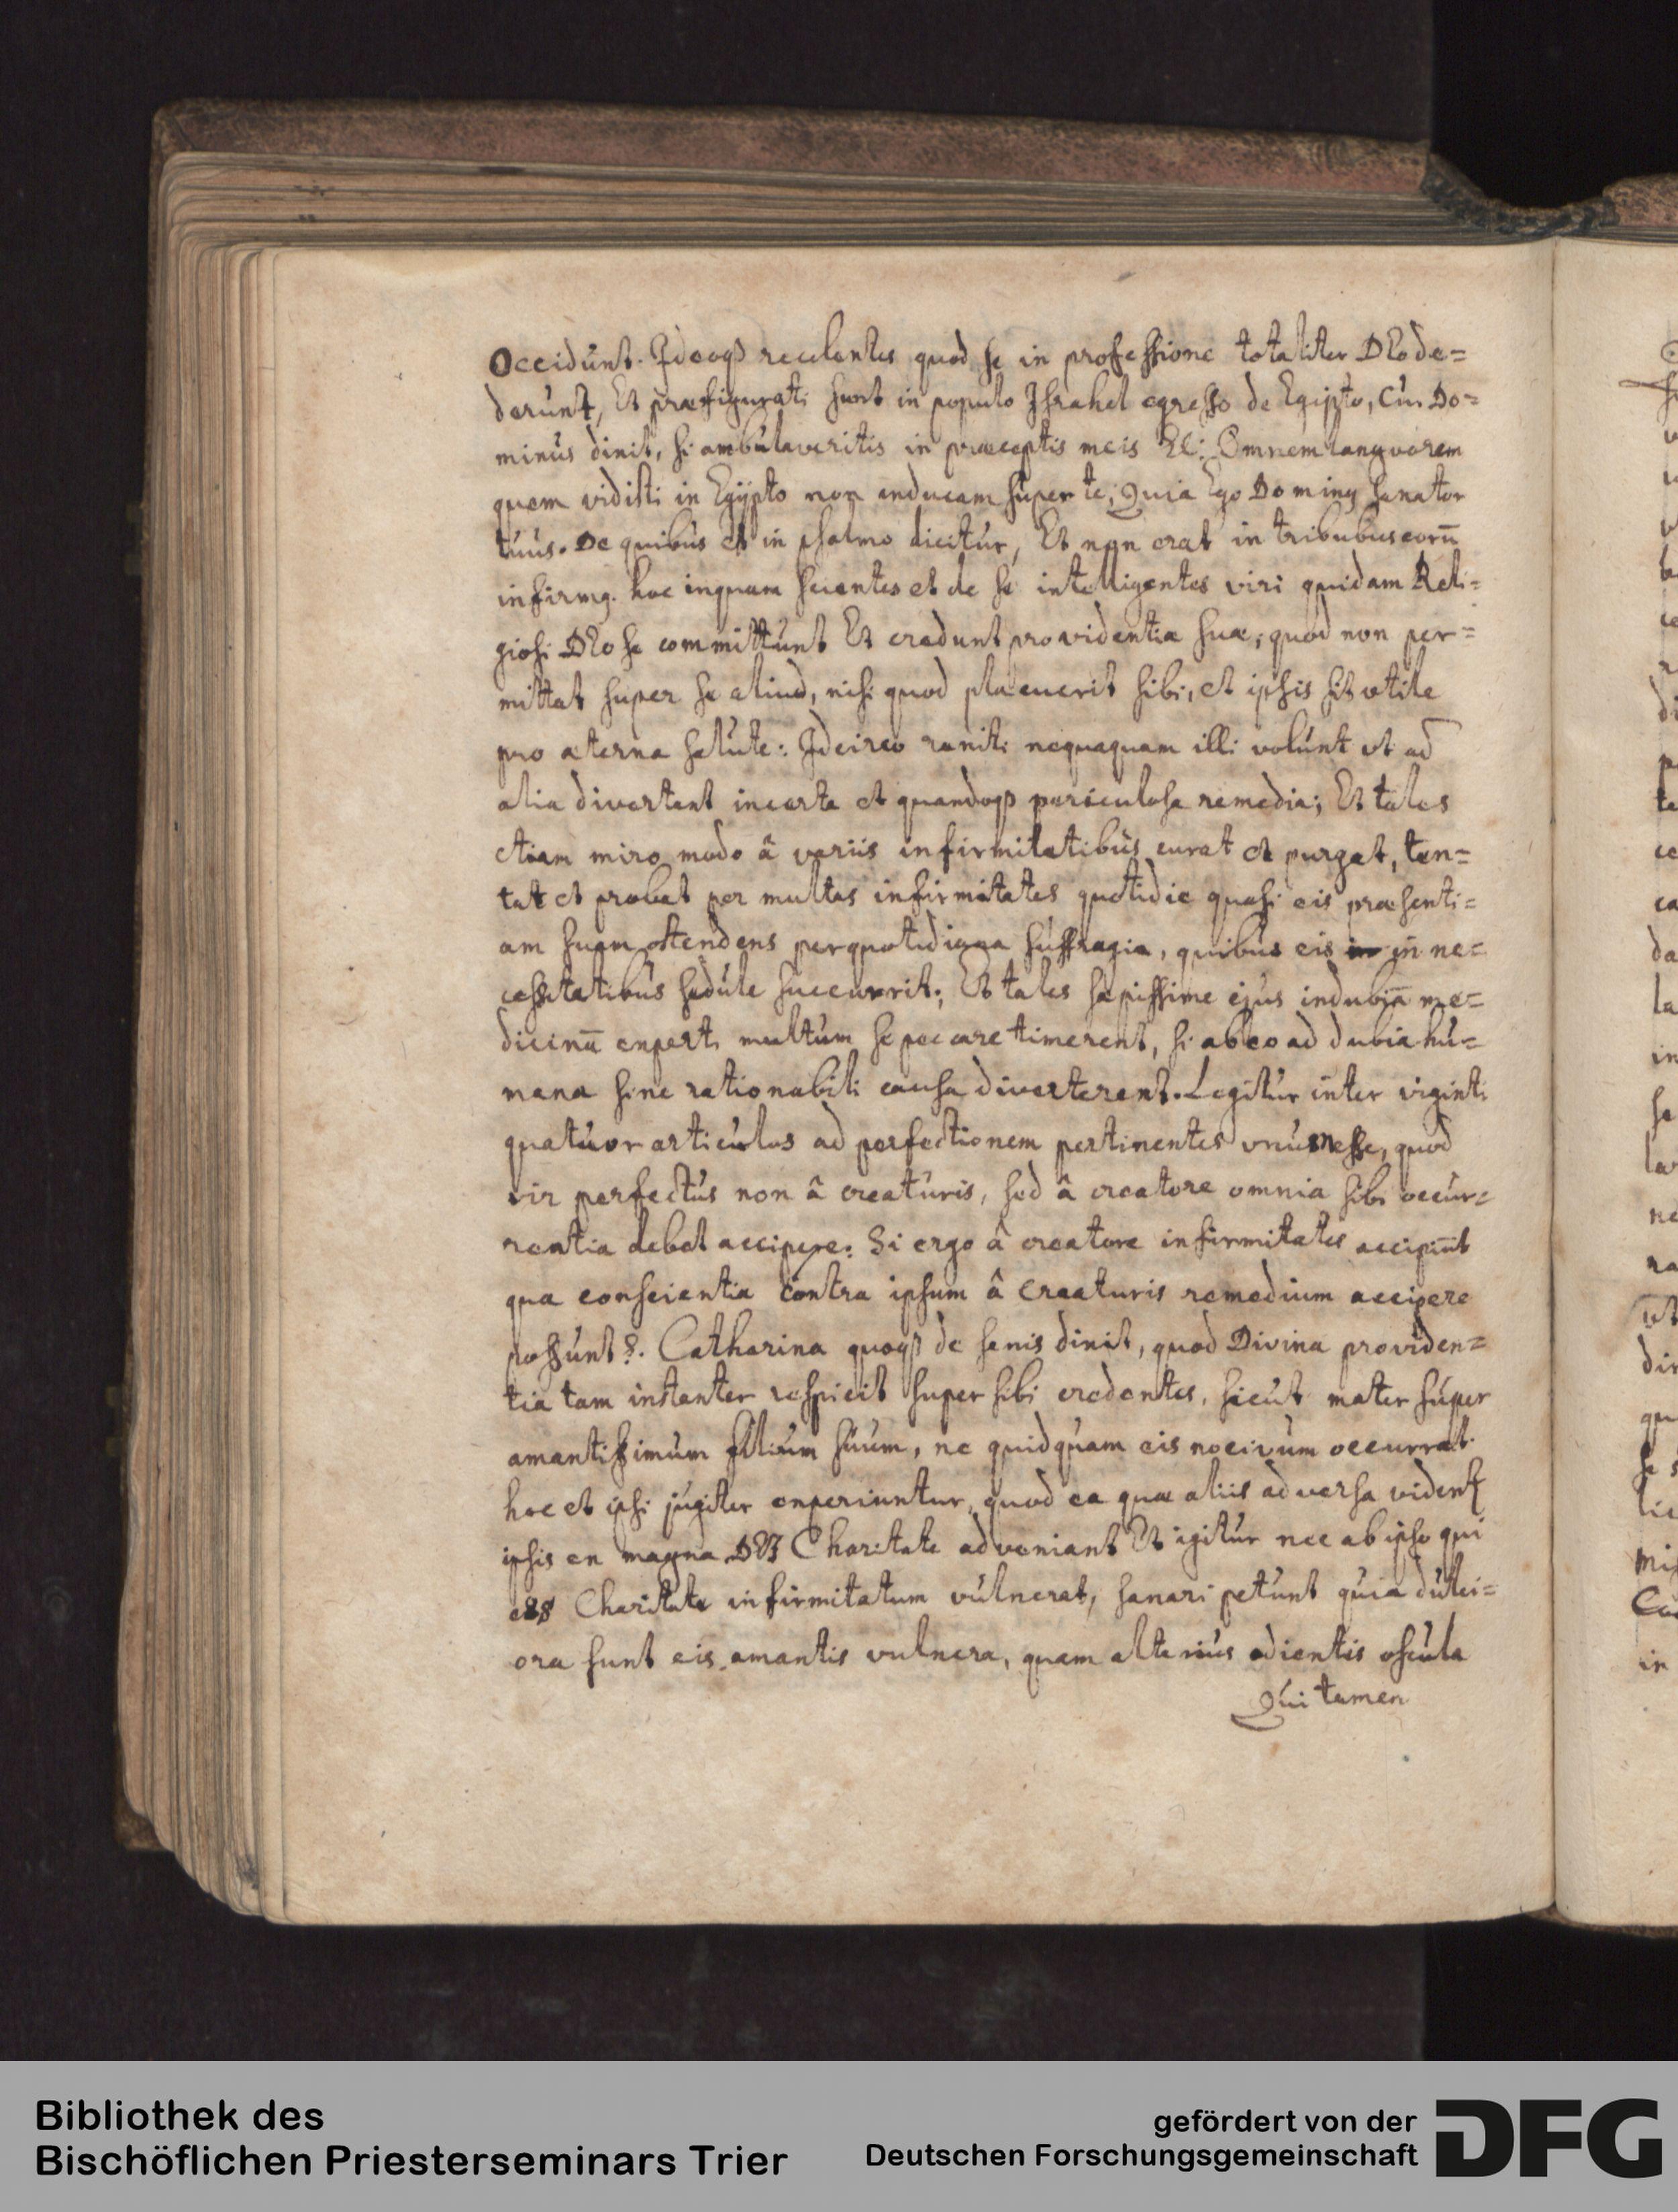 Occidunt. Ideoqꝫ recolentes quod se in professione totaliter DEo de=
derunt, Et præfigurati sunt in populo Israhel egresso de Egipto, Cui Do=
minus dixit, si ambulaveritis in præceptis meis Ec: Omnem languorem
quem vidisti in Egÿpto non inducam super te; Quia Ego Dominꝰ sanator
tuus. De quibus et in psalmo dicitur, Et non erat in tribubus eorū
infirmꝰ. hoc inquam scientes et de se intelligentes viri quidam Reli=
giosi DEo se committunt Et credunt providentiæ suæ, quod non per=
mittat super se aliud, nisi quod placuerit sibi, et ipsis sit vtile
pro æterna salute: Idcirco uniti nequaquam illi volunt vt ad
alia divertant incerta et quandoqꝫ periculosa remedia; Et tales
etiam miro modo â variis infirmitatibus curat et purgat, ten=
tat et probat per multas infirmitates quotidie quasi eis præsenti=
am suam ostendens per quotidiana suffragia, quibus eis in ne=
cessitatibus sedule succurrit; Et tales sæpissime ejus indubiā me=
dicinā experti multum se peccare timerent, si ab eo ad dubia hu=
mana sine rationabili causa diverterent. Legitur inter viginti
quatuor articulos ad perfectionem pertinentes vnum esse, quod
vir perfectus non â creaturis, sed â creatore omnia sibi occur=
rentia debet accipere: Si ergo â creatore infirmitates accipiūt
qua conscientia contra ipsum â Creaturis remedium accipere
possunt?. Catharina quoqꝫ de senis dixit, quod Divina providen=
tia tam instanter respicit super sibi credentes, sicut mater super
amantissimum filium suum, ne quidquam eis nocivum occurrat.
hoc et ipsi jugiter experiuntur, quod ea quæ aliis adversa vident
ipsis ex magna DEI Charitate adveniant Et igitur nec ab ipso qui
eos Charitate infirmitatum vulnerat, sanari petunt quia dulci=
ora sunt eis amantis vulnera, quam alterius odientis oscula
Qui tamen
Bibliothek des
Bischöflichen Priesterseminars Trier
gefördert von der
Deutschen Forschungsgemeinschaft
DFG